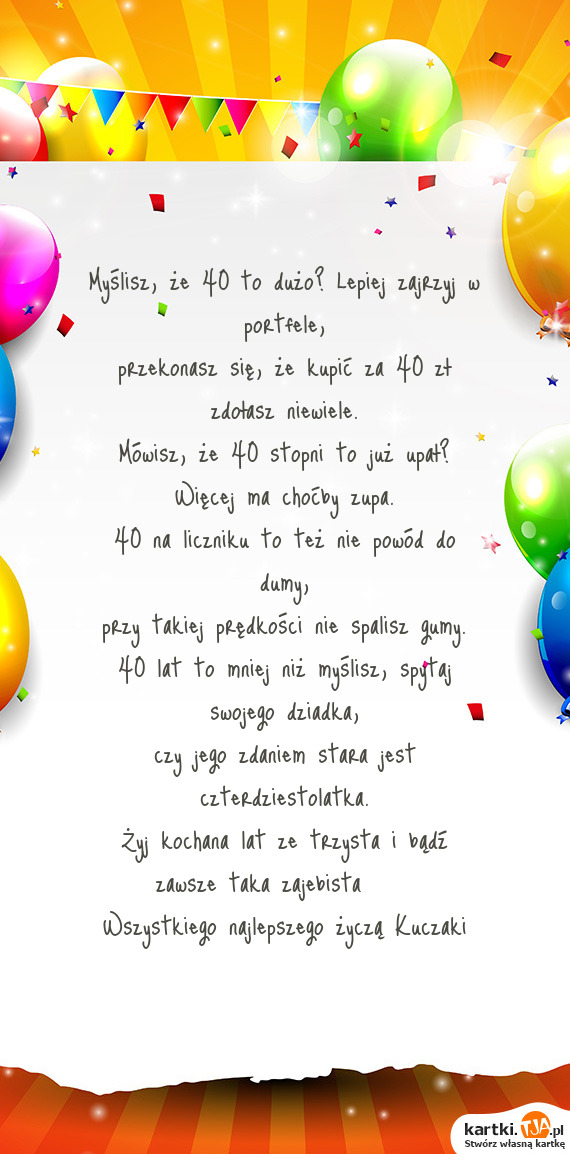 Myślisz, że 40 to dużo? Lepiej zajrzyj w
portfele,
przekonasz się, że kupić za 40 zł
zdołasz niewiele.
Mówisz, że 40 stopni to już upał?
Więcej ma choćby zupa.
40 na liczniku to też nie powód do
dumy,
przy takiej prędkości nie spalisz gumy.
40 lat to mniej niż myślisz, spytaj
swojego dziadka,
czy jego zdaniem stara jest
czterdziestolatka.
Żyj kochana lat ze trzysta i bądź
zawsze taka zajebista
Wszystkiego najlepszego życzą Kuczaki
kartki.TJA.pl
Stwórz własną kartkę